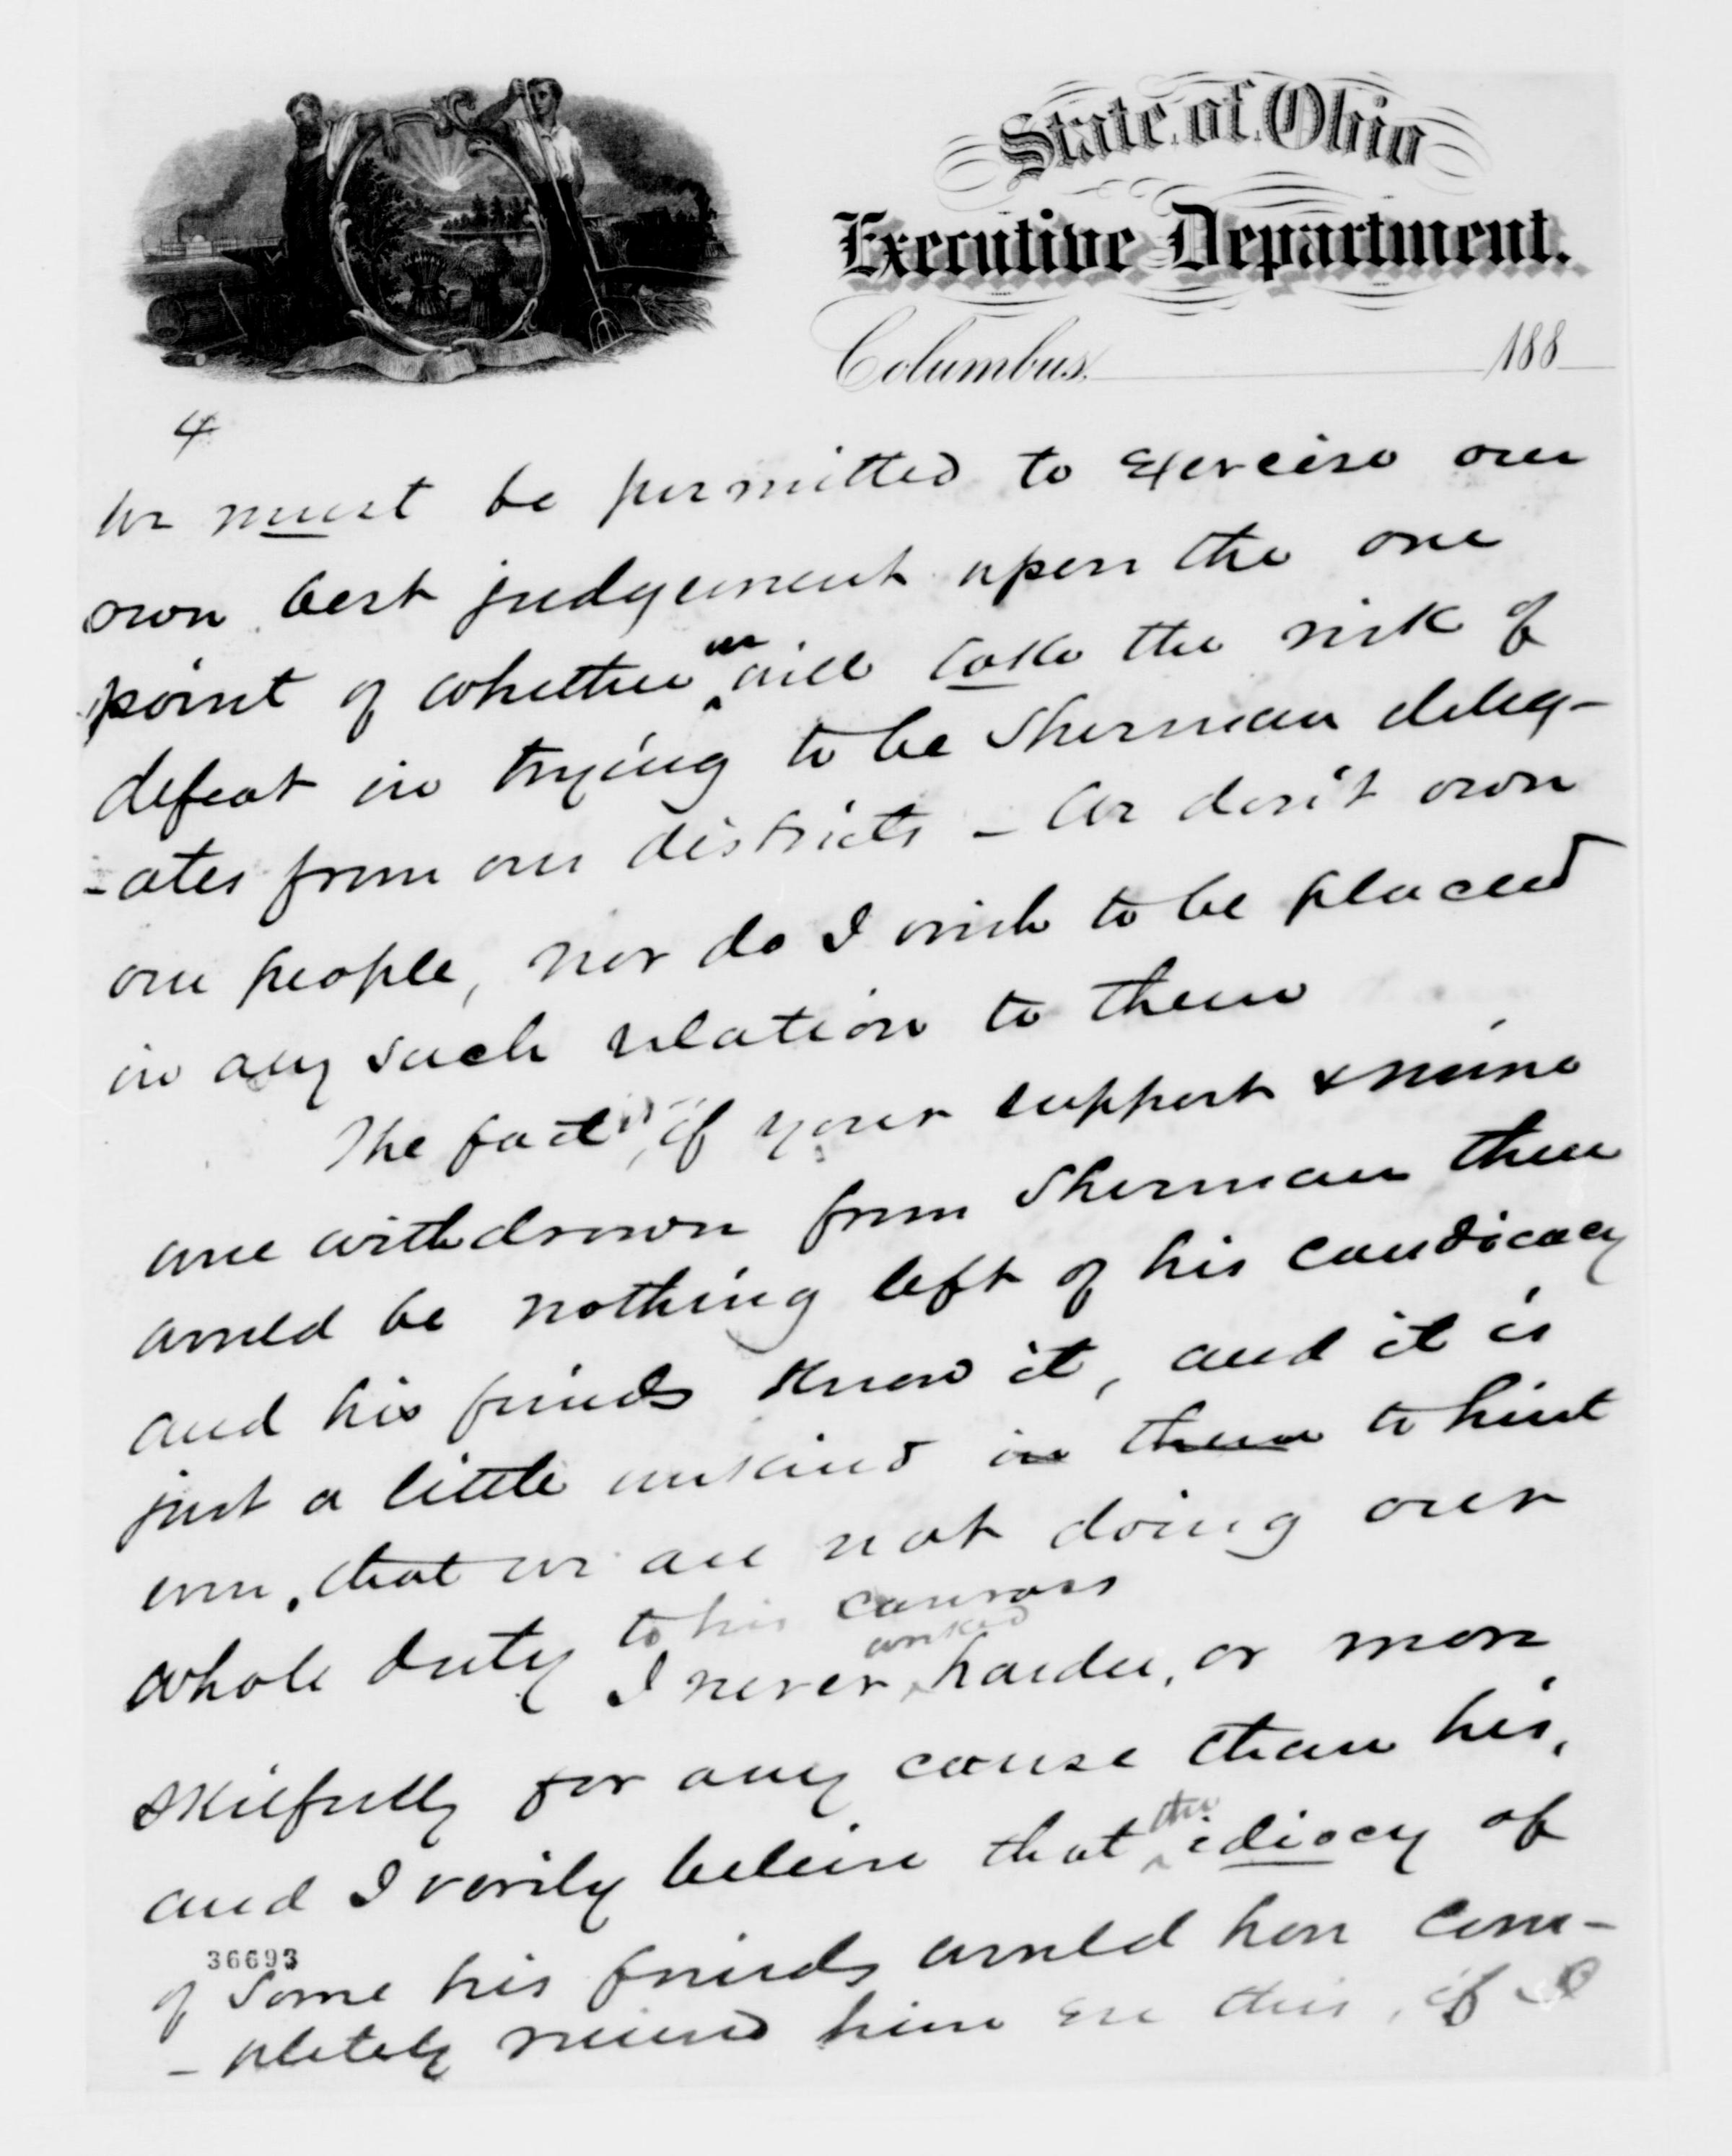 State of Ohio
Executive Department.
Columbus, 188
4
We must be permitted to exercise our
own best judgement upon the one
point of whether we will take the risk of
defeat in trying to be Sherman deleg-
-ates from our districts - We don't own
our people, nor do I wish to be placed
in any such relation to them
The fact is, if your support & mine
were withdrawn from Sherman there
would be nothing left of his candicacy
and his friends know it, and it is
just a little unkind in them to hint
even, that we are not doing our
whole duty to his canvass
I never worked harder, or more
skilfully for any cause than his,
and I verily believe that the idiocy of
36693
of some his friends would have com-
- pletely ruined him ere this, if I